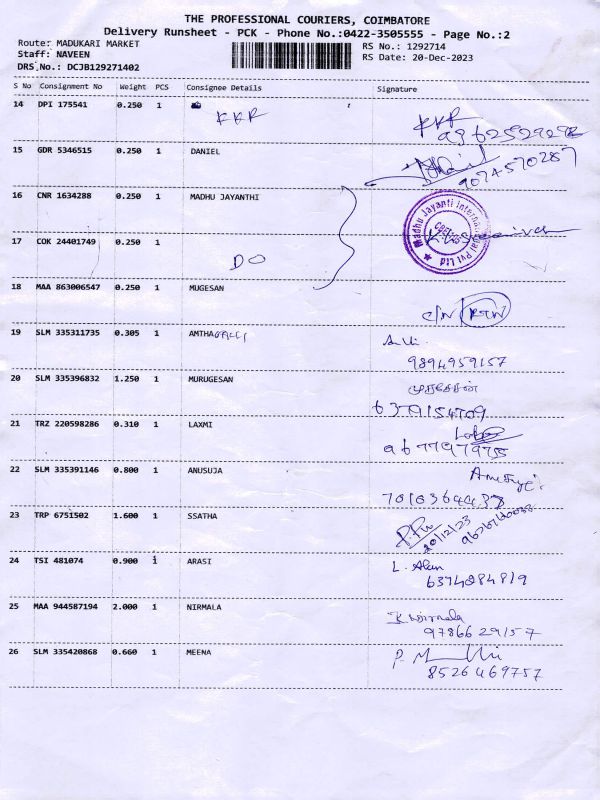 THE PROFESSIONAL COURIERS, COIMBATORE
Delivery Runsheet - PCK - Phone No.:0422-3505555 - Page No.:2
Route: MADUKARI MARKET
Staff: NAVEEN
DRS No.: DCJB129271402
RS No.: 1292714
RS Date: 20-Dec-2023
S No Consignment No Weight PCS Consignee Details Signature
14 DPI 175541 0.250 1 KKR KKR
15 GDR 5346515 0.250 1 DANIEL
9074570287
16 CNR 1634288 0.250 1 MADHU JAYANTHI
Madhu Jayanti International Pvt Ltd
17 COK 24401749 0.250 1 DO
18 MAA 863006547 0.250 1 MUGESAN
C/N RTN
19 SLM 335311735 0.305 1 AMTHA
9894959157
20 SLM 335396832 1.250 1 MURUGESAN முருகேசன்
6379154709
21 TRZ 220598286 0.310 1 LAXMI
9677979755
22 SLM 335391146 0.800 1 ANUSUJA
7010364437
23 TRP 6751502 1.600 1 SSATHA
20/12/23
24 TSI 481074 0.900 1 ARASI L. Alan
6374284819
25 MAA 944587194 2.000 1 NIRMALA K Nirmala
9786629157
26 SLM 335420868 0.660 1 MEENA
8526469757